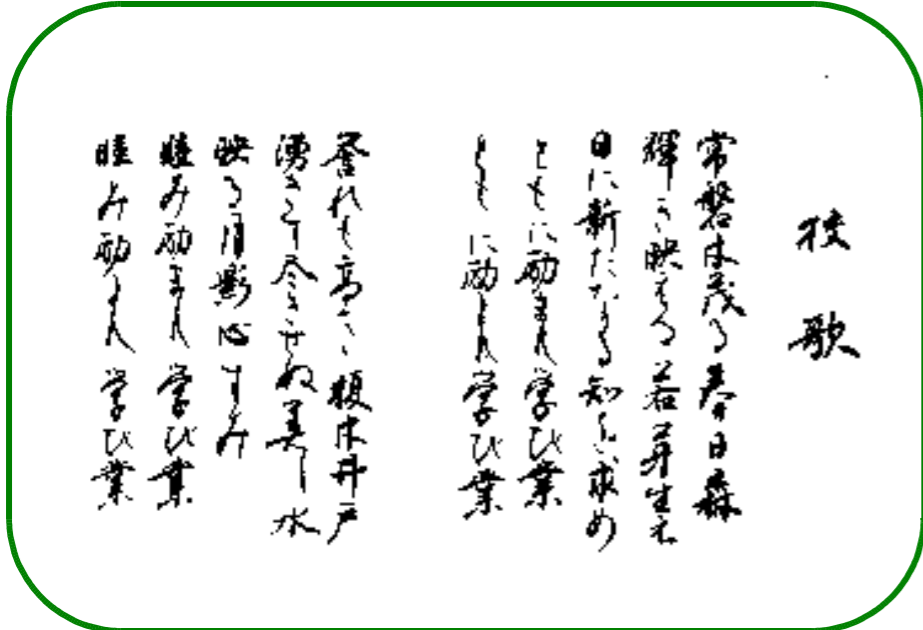 校歌
常磐木茂る春日森
輝き映ゆる若芽生え
日に新たなる知らい求め
ともに励まん学び業
ともに励まん学び業
誉れも高き榎木井戸
湧きて尽きせぬ美し水
映る月影心すみ
睦み励まん学び業
睦み励まん学び業